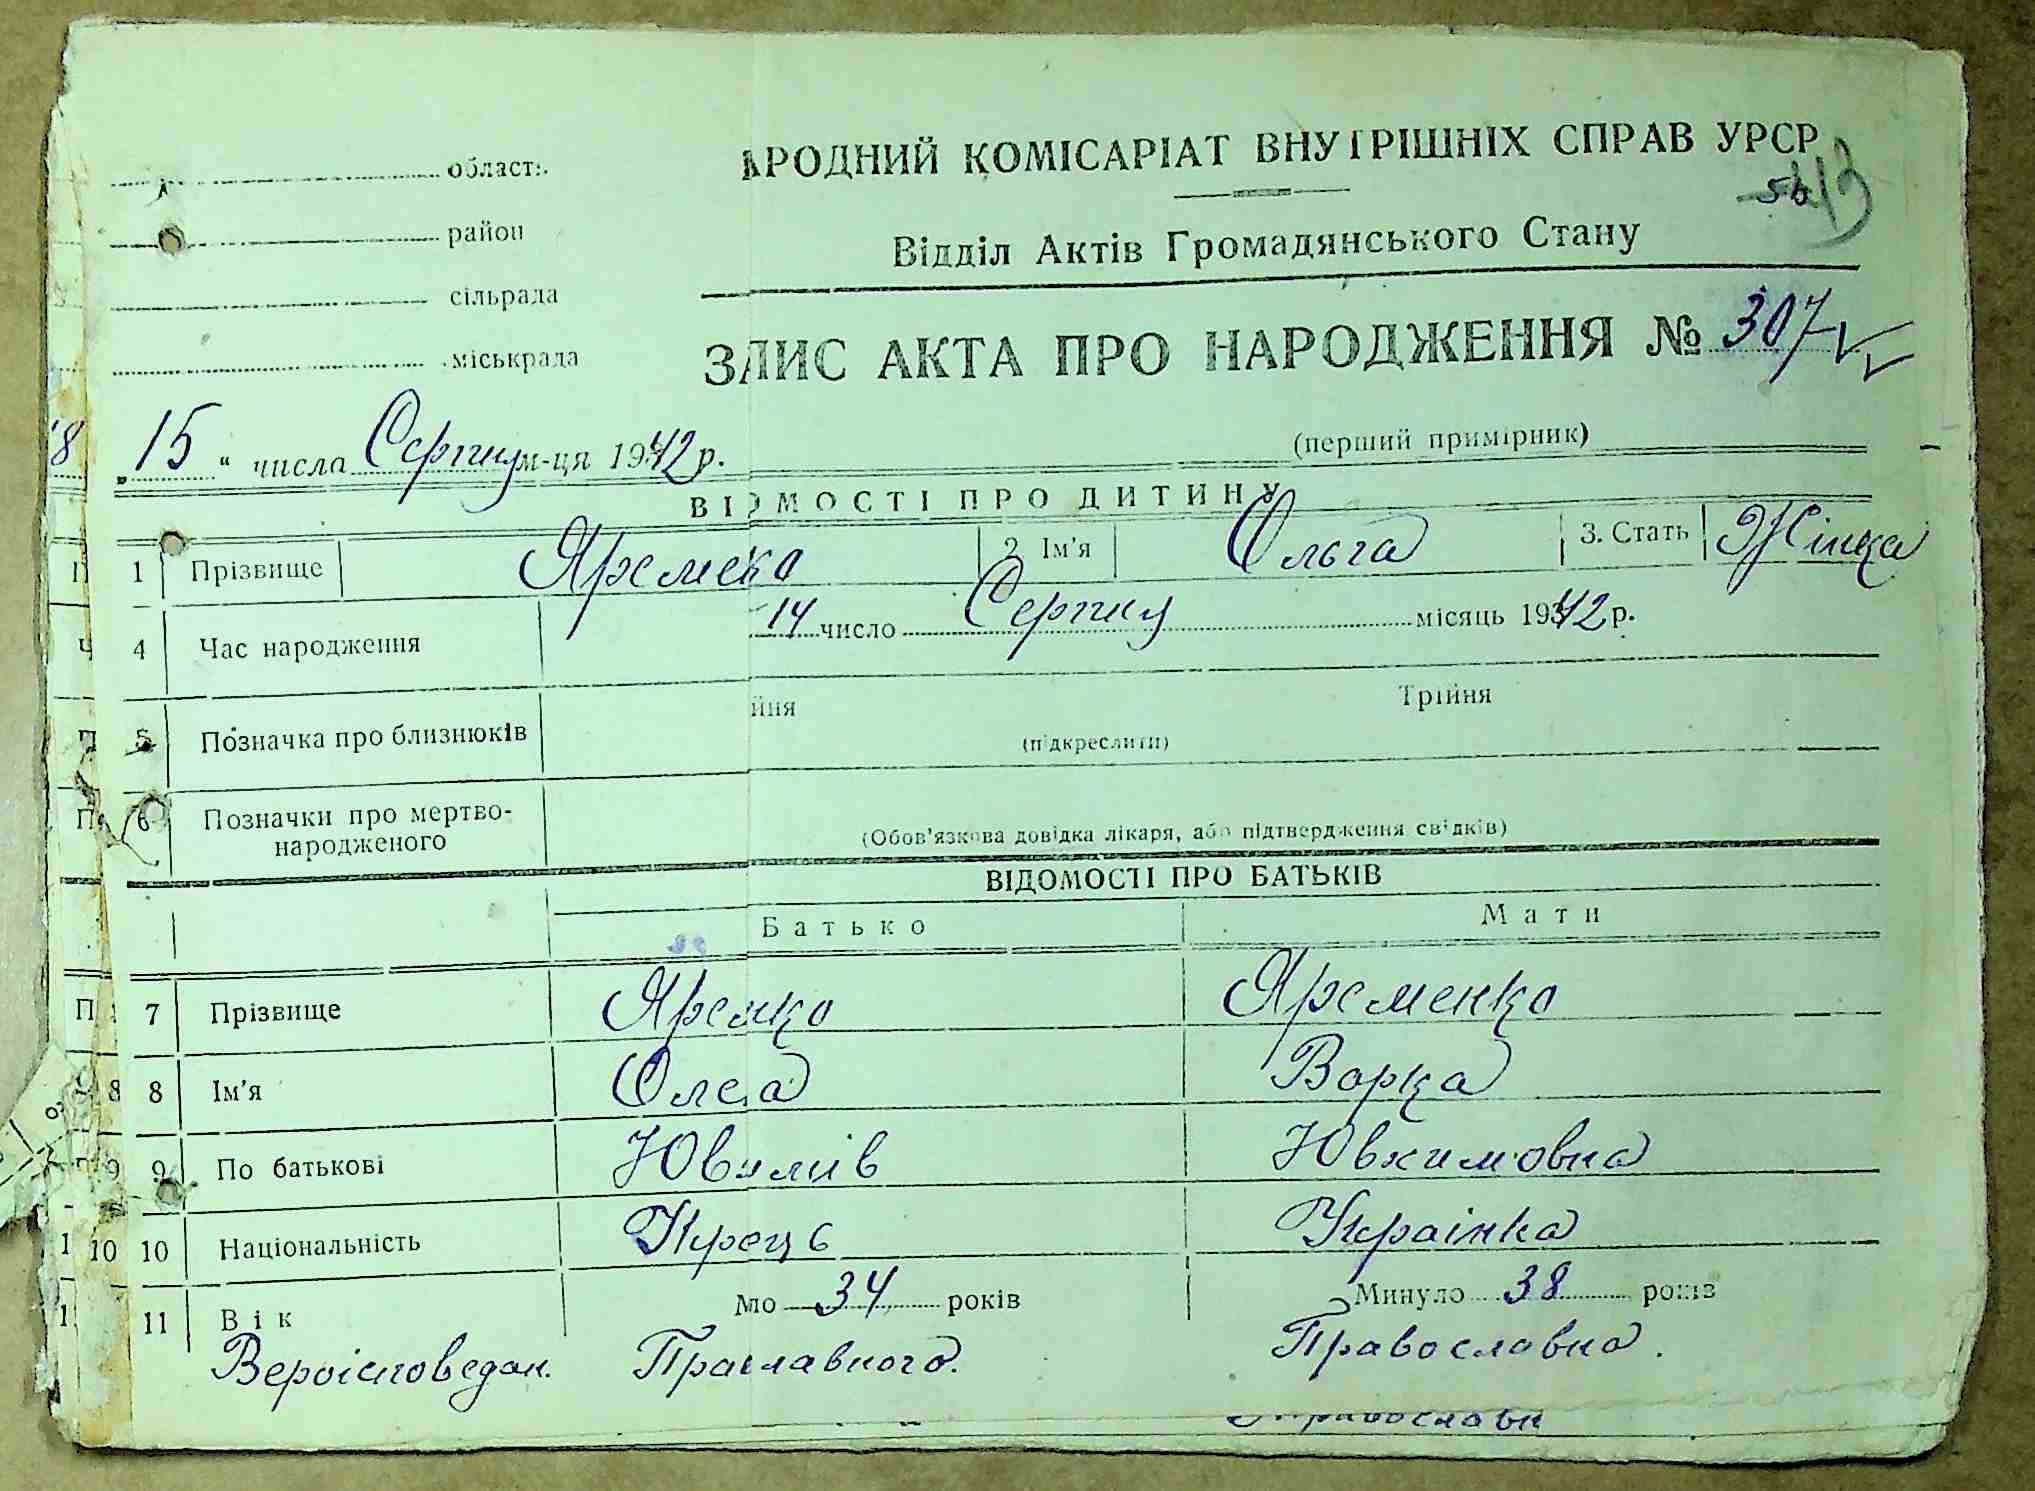 область
АРОДНИЙ КОМІСАРІАТ ВНУТРІШНІХ СПРАВ УРСР
район
Відділ Актів Громадянського Стану
сільрада
міськрада
ЗАПИС АКТА ПРО НАРОДЖЕННЯ № 307
(перший примірник)
„15“ числа Серпня м-ця 1942 р.
ВІДОМОСТІ ПРО ДИТИНУ
1 Прізвище Яремеко 2 Ім'я Ольга 3. Стать Жінка
4 Час народження 14 число Серпня місяць 1942 р.
5 Позначка про близнюків йня Трійня
(підкреслити)
6 Позначки про мертво-
народженого
(Обов'язкова довідка лікаря, або підтвердження свідків)
ВІДОМОСТІ ПРО БАТЬКІВ
Батько Мати
7 Прізвище Яремко Яременко
8 Ім'я Варка
9 По батькові Ювхимовна
10 10 Національність Украінка
11 Вік ло 34 років Минуло 38 років
Вероісповедан. Праславного. Православна.